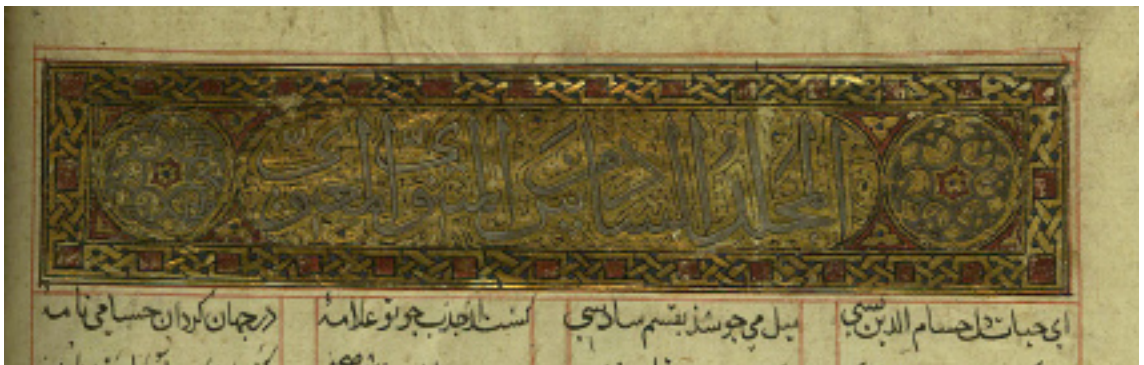 المجلد السادس من المثنوي المعنوي
ای حیات دل حسام الدین بسی میل می جوشد بقسم سادسی
کشت از جذب چو تو علامه در جهان کردان حسامی نامه